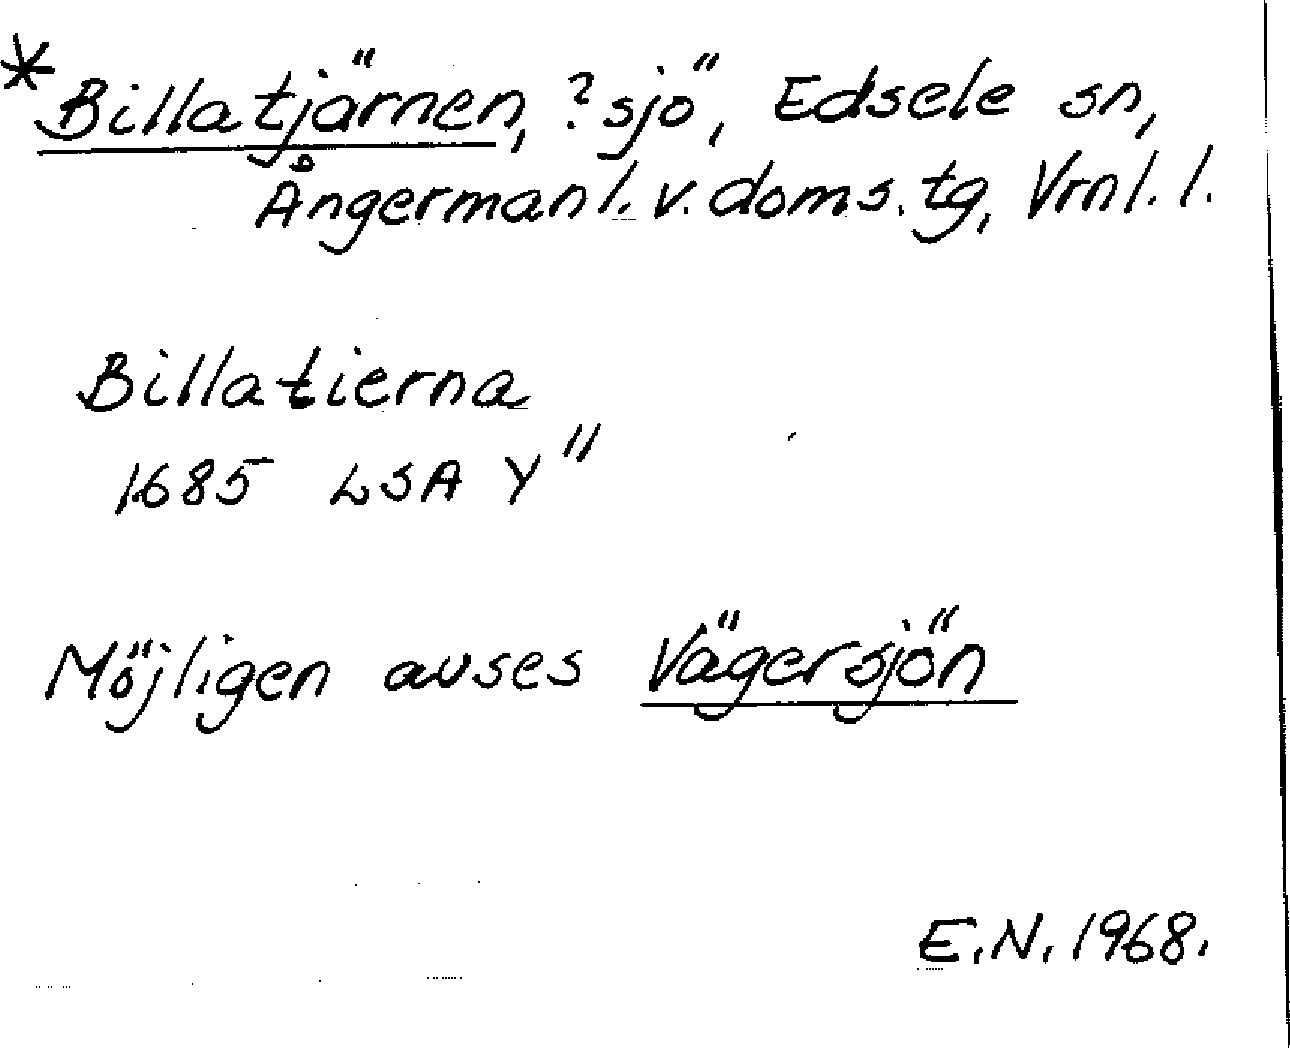 *Billatjärnen, ? sjö, Edsele sn,
Ångermanl. v. doms. tg, Vrnl. l.
Billatierna
1685 LSA Y"
Möjligen avses Vägersjön
E.N. 1968.